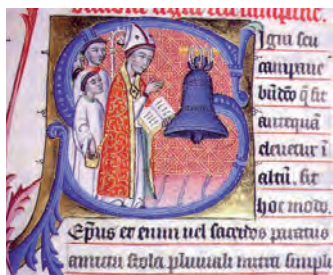 signi seu campane.
Signi seu
campane
bñdcõ q̃ fit
antequã
eleuetur ĩ
altũ, fit
hoc modo.
Ep̃us et enim uel sacerdos paratus
amictu stola pluuiali mitra simpli